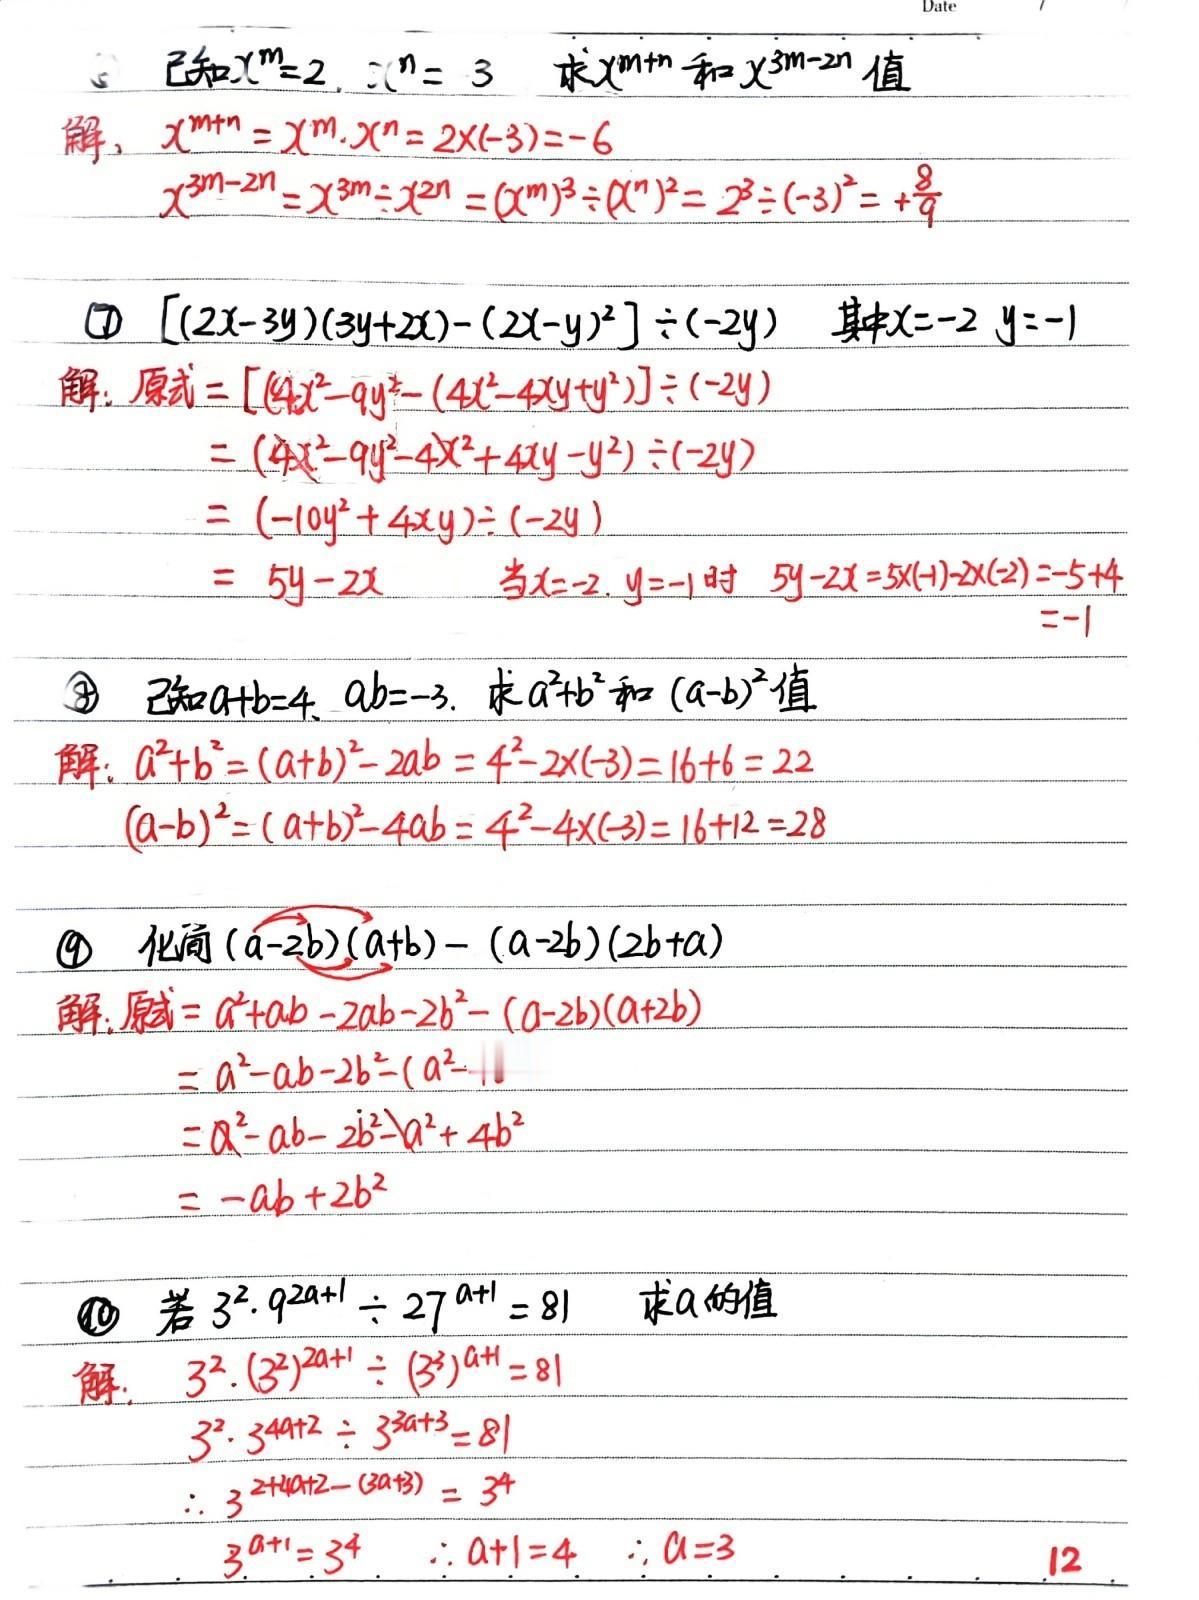 Date /
已知x^m=2, x^n= 3 求x^{m+n} 和 x^{3m-2n} 值
解, x^{m+n} = x^m·x^n = 2×(-3)=-6
x^{3m-2n} = x^{3m}÷x^{2n} = (x^m)³÷(x^n)² = 2³÷(-3)² = +8/9
⑦ [(2x-3y)(3y+2x)-(2x-y)²]÷(-2y) 其中x=-2 y=-1
解: 原式 = [(4x²-9y²-(4x²-4xy+y²)]÷(-2y)
= (4x²-9y²-4x²+4xy-y²)÷(-2y)
= (-10y²+4xy)÷(-2y)
= 5y-2x 当x=-2. y=-1时 5y-2x=5×(-1)-2×(-2)=-5+4
=-1
⑧ 已知a+b=4、ab=-3. 求a²+b²和(a-b)²值
解: a²+b²=(a+b)²-2ab=4²-2×(-3)=16+6=22
(a-b)²=(a+b)²-4ab=4²-4×(-3)=16+12=28
⑨ 化简(a-2b)(a+b)-(a-2b)(2b+a)
解: 原式= a²+ab-2ab-2b²-(a-2b)(a+2b)
= a²-ab-2b²-(a²-
= a²-ab-2b²-a²+4b²
= -ab+2b²
⑩ 若 3²·9^{2a+1}÷27^{a+1}=81 求a的值
解: 3²·(3²)^{2a+1}÷(3³)^{a+1}=81
3²·3^{4a+2}÷3^{3a+3}=81
∴ 3^{2+4a+2-(3a+3)} = 3⁴
3^{a+1}=3⁴ ∴ a+1=4 ∴ a=3 12